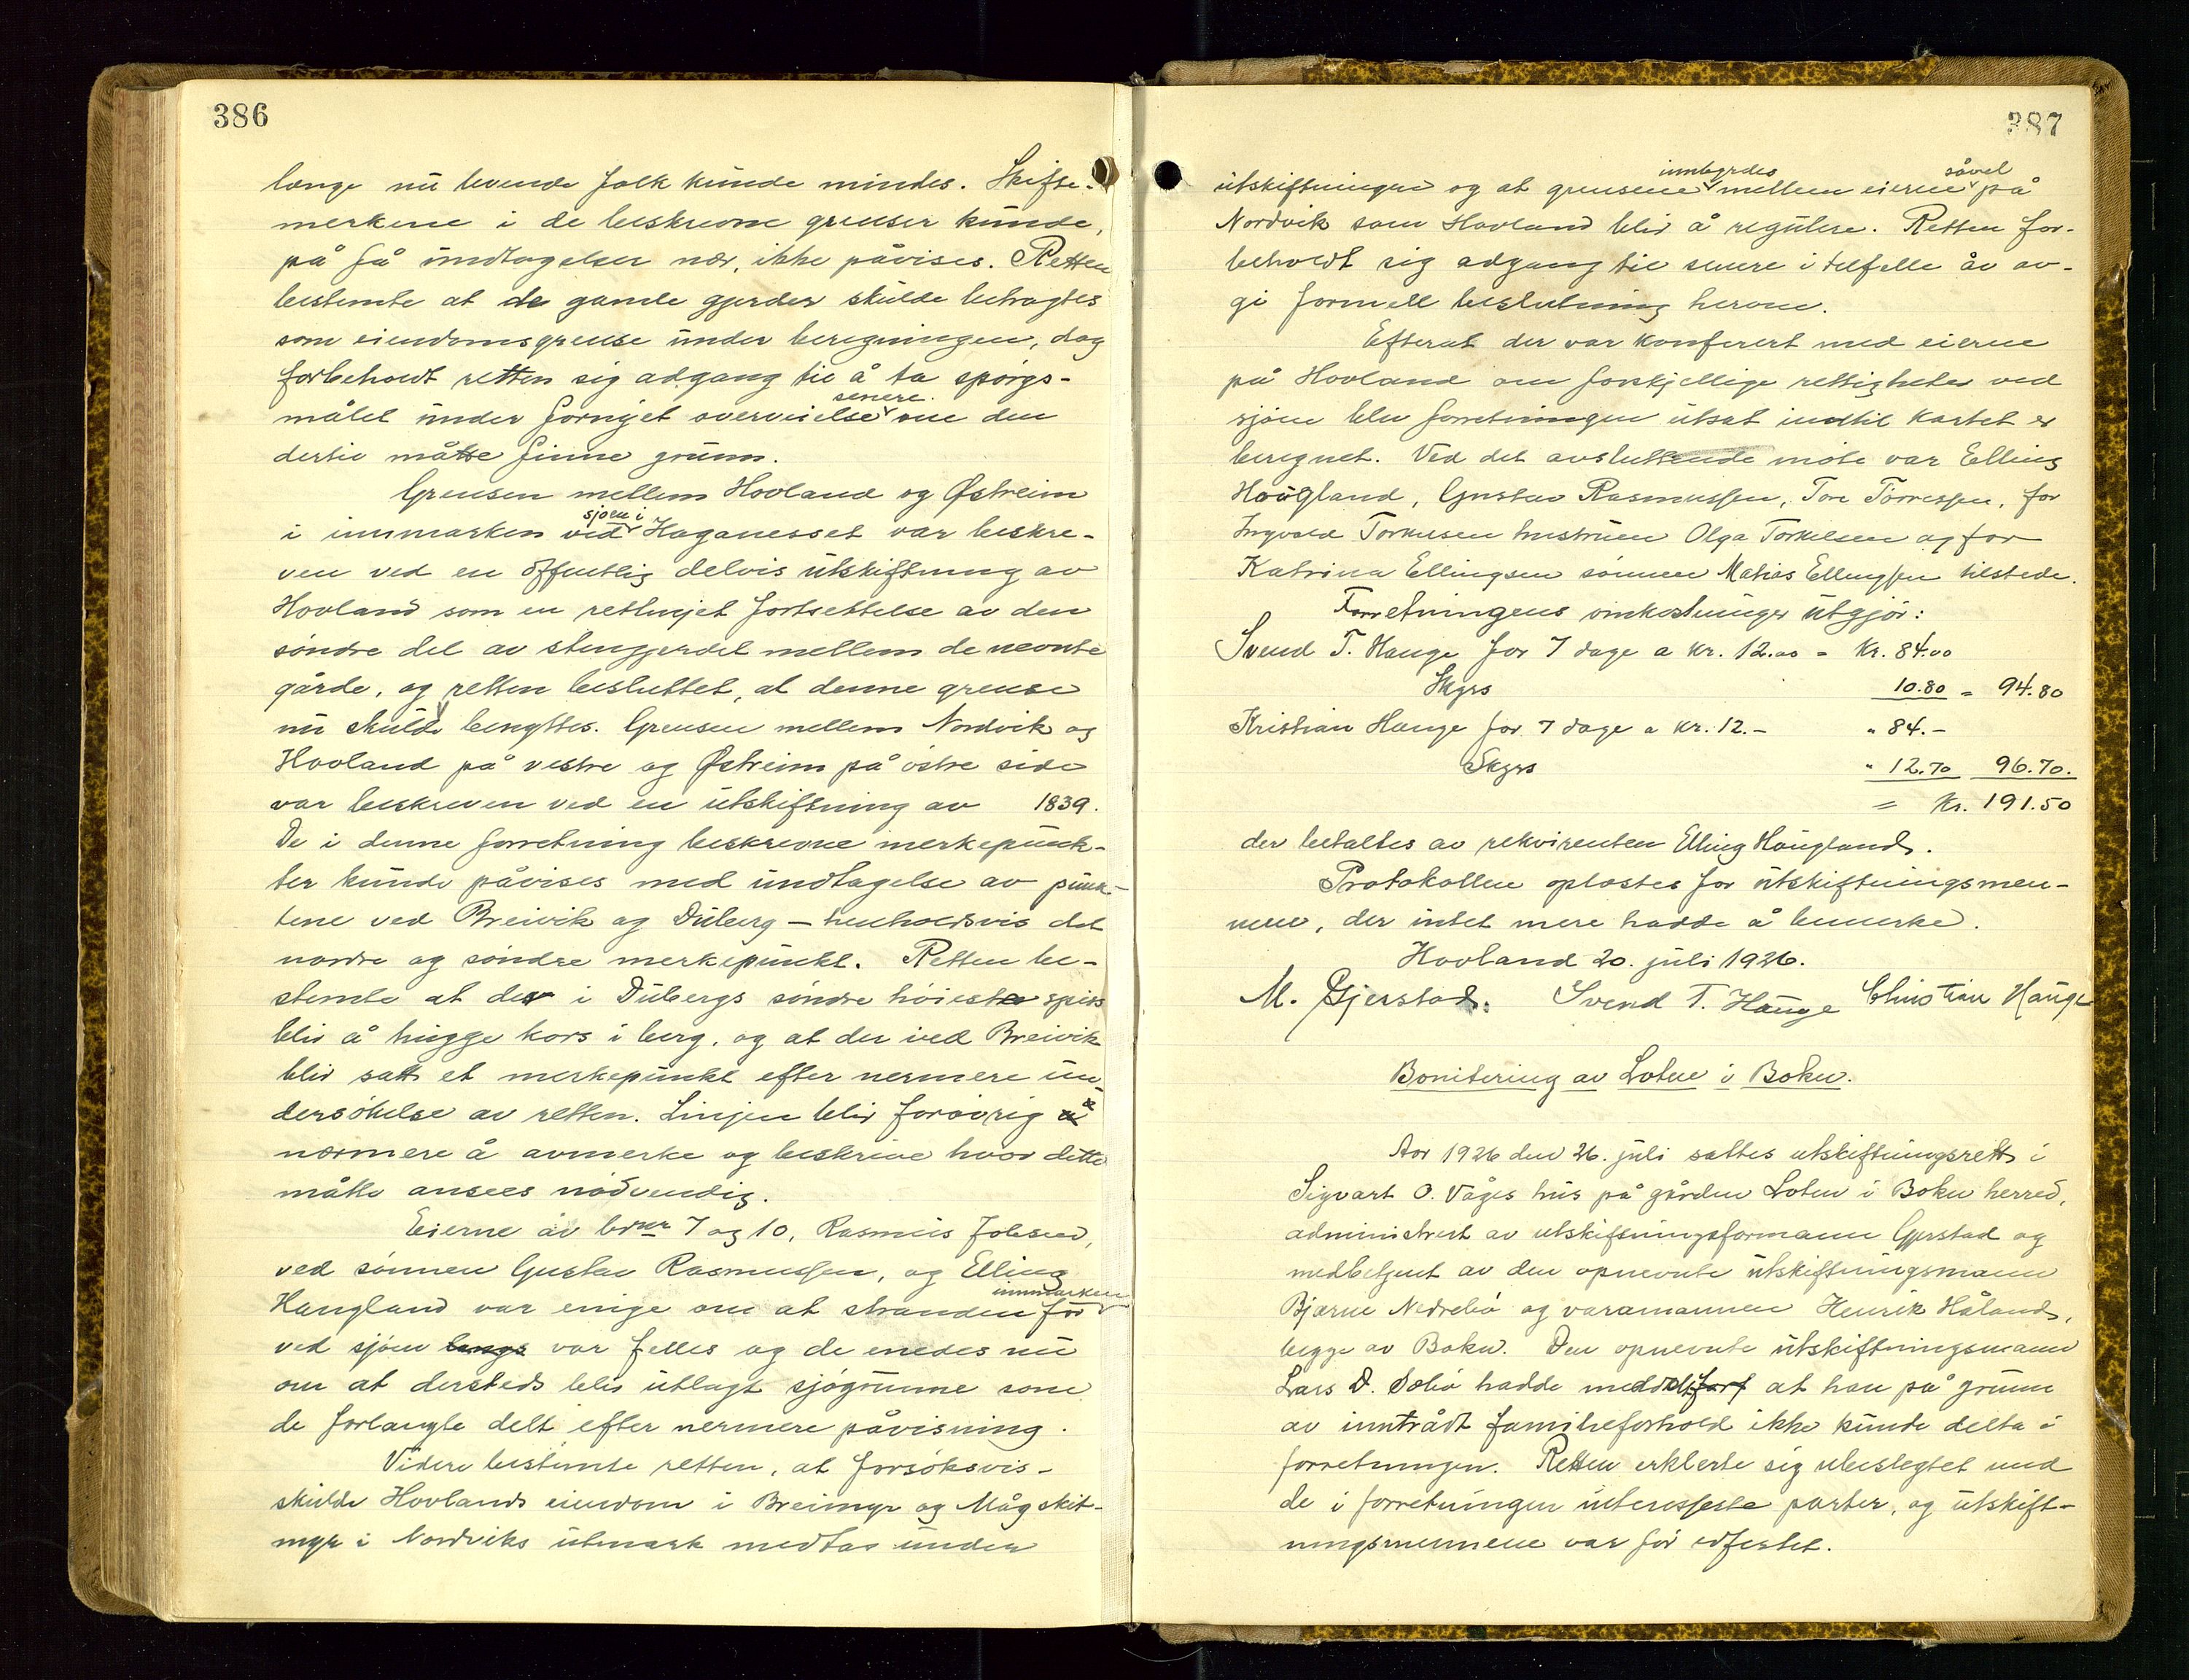 386
længe nu levende folk kunde mindes. Skifte-
merkene i de beskrevne grenser kunde,
på få undtagelser nær, ikke påvises. Retten
bestemte at de gamle gjerder skulde betragtes
som eiendomsgrense under beregningen, dog
forbeholdt retten sig adgang til å ta spørgs-
målet under fornyet overveielse senere om den
dertil måtte finne grunn.
Grensen mellem Hovland og Østreim
i innmarken ved sjøen i Haganesset var beskre-
ven ved en offentlig delvis utskiftning av
Hovland som en retlinjet fortsettelse av den
søndre del av stengjerdet mellem de nevnte
gårde, og retten besluttet, at denne grense
nu skulde benyttes. Grensen mellem Nordvik og
Hovland på vestre og Østreim på østre side
var beskreven ved en utskiftning av 1839.
De i denne forretning beskrevne merkepunk-
ter kunde påvises med undtagelse av punk-
tene ved Breivik og Duberg – henholdsvis det
nordre og søndre merkepunkt. Retten be-
stemte at der i Dubergs søndre høieste spiss
blir å hugge kors i berg, og at der ved Breivik
blir satt et merkepunkt efter nermere un-
dersøkelse av retten. Linjen blir forøvrig å
nærmere å avmerke og beskrive hvor dette
måtte ansees nødvendig.
Eierne av brnr 7 og 10, Rasmus Johsen,
ved sønnen Gustav Rasmussen, og Elling
Haugland var enige om at stranden for innmarken
ved sjøen langs var felles og de enedes nu
om at dersteds blir utlagt sjøgrunne som
de forlangte delt efter nermere påvisning.
Videre bestemte retten, at forsøksvis
skulde Hovlands eiendom i Breimyr og Mågskit-
myr i Nordviks utmark medtas under
387
utskiftningen og at grensene innbyrdes mellem eierne såvel på
Nordvik som Hovland blir å regulere. Retten for-
beholdt sig adgang til senere i tilfelle åv av-
gi formell beslutning herom.
Efterat der var konferert med eierne
på Hovland om forskjellige rettigheter ved
sjøen blev forretningen utsat indtil kartet er
beregnet. Ved det avsluttende møte var Elling
Haugland, Gustav Rasmussen, Tore Tørressen, for
Ingvald Torkelsen hustruen Olga Torkelsen og for
Katrina Ellingsen sønnen Matias Ellingsen tilstede.
Forretningens omkostninger utgjør:
Svend T. Hauge for 7 dage a kr. 12.00 = Kr. 84.00
Skyss 10.80 = 94.80
Kristian Hauge for 7 dage a kr. 12.– " 84.–
Skyss " 12.70 96.70.
= Kr. 191.50
der betaltes av rekvirenten Elling Haugland.
Protokollen oplæstes for utskiftningsmen-
nene, der intet mere hadde å bemerke.
Hovland 20. juli 1926.
M. Gjerstad. Svend T. Hauge Christian Hauge
Bonitering av Loten i Bokn.
Aar 1926 den 26. juli sattes utskiftningsrett i
Sigvart O. Våges hus på gården Loten i Bokn herred,
administrert av utskiftningsformann Gjerstad og
medbetjent av den opnevnte utskiftningsmann
Bjarne Nedrebø og varamannen Henrik Håland,
begge av Bokn. Den opnevnte utskiftningsmann
Lars D. Sæbø hadde meddelt forf at han på grunn
av inntrådt familieforhold ikke kunde delta i
forretningen. Retten erklerte sig ubeslegtet med
de i forretningen interesserte parter, og utskift-
ningsmennene var før edfestet.